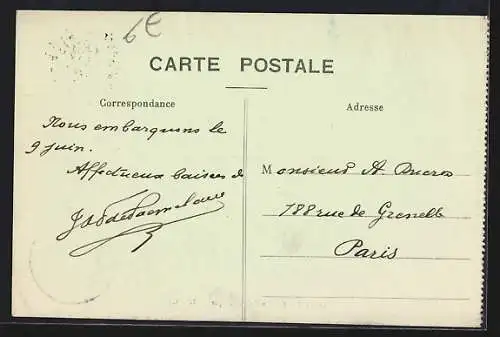 6€
CARTE POSTALE
Correspondance
Adresse
Nous embarquons le
9 juin.
Affectueux baisers de
Monsieur A. Ducros
188 rue de Grenelle
Paris